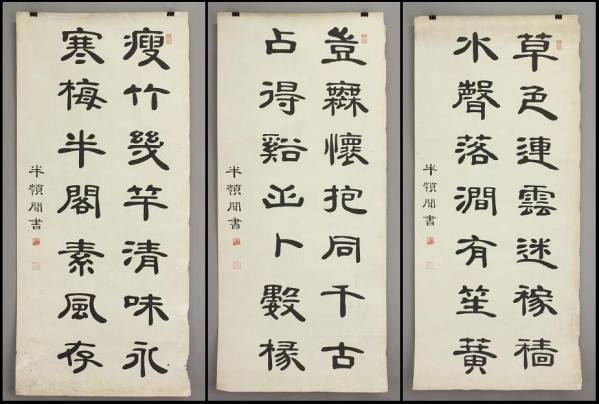 草色連雲迷稼穡
水聲落澗有笙簧
半書
豈無懷抱同千古
占得谿山卜數椽
半書
瘦竹幾竿清味永
寒梅半閣素風存
半書